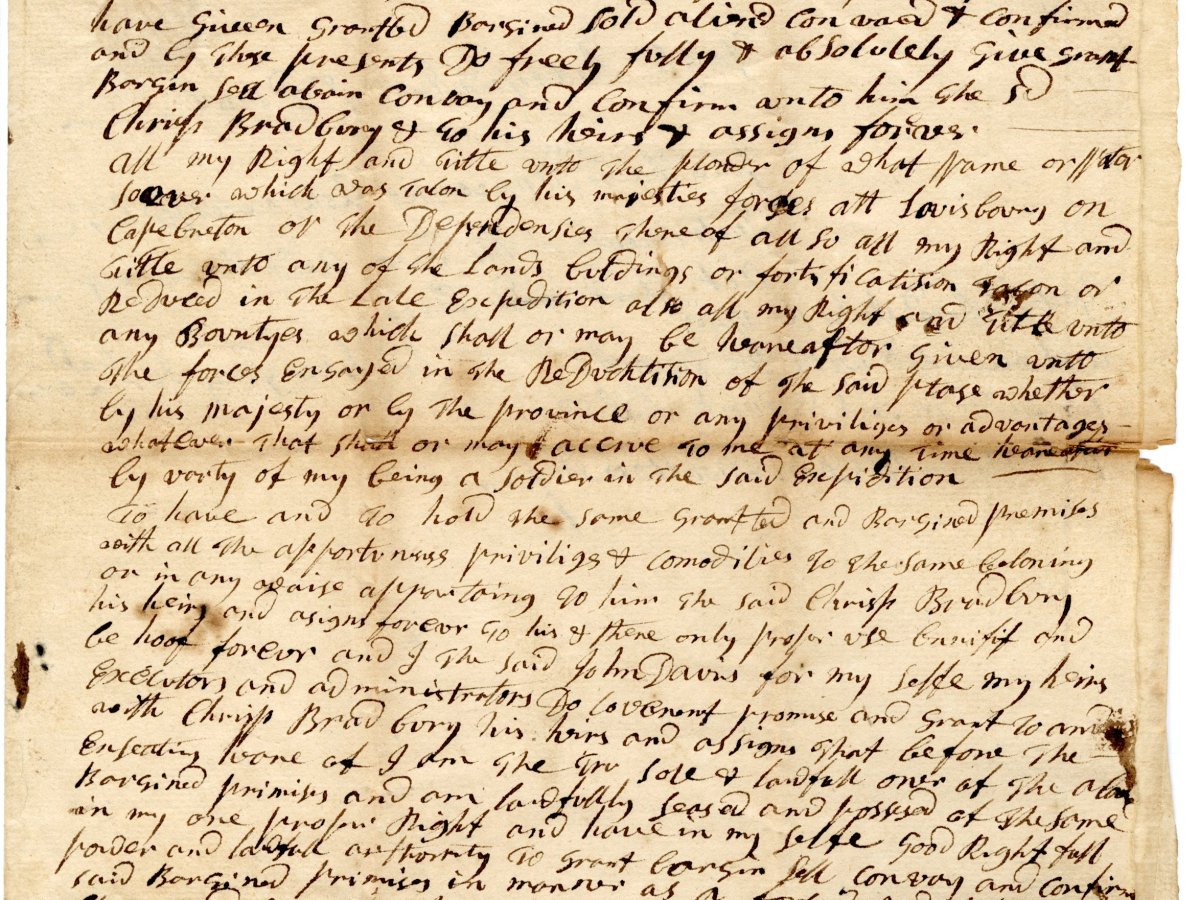 have Giveen Grantted Bargined Sold aliend Convaed & Confirmed
and by these presents Do freely fully & absolutely Give Grant
Bargin Sell aleain Convay and Confirm unto him the sd
Chrisp Bradbury & to his heirs & assigns forever
all my Right and Title unto the plonder of what
soever which was Talon by his majesties forses att Lovisbourg on
Capebreton or the Dependensies there of all so all my Right and
Title unto any of the Lands buldings or fortificatision Tacon or
ReDuced in the Late Expedition also all my Right and Title unto
any Bountyes which shall or may be heareafter Given unto
the forces Engayed in the ReDucktision of the said plase whether
by his majesty or by the province or any priviliges or advantages
whatever that shall or may accrve to me at any time heareafter
by varty of my being a Soldier in the said Expidition
To have and to hold the same Grantted and Bargined premises
with all the priviligs & comodilies to the same beloning
or in any waise appartaing to him the said Chrisp Bradbury
his heirs and asigns forevr to his & there only proper use bennifit and
be hoof forevr and I the said John Davis for my selfe my heirs
Executors and administrators Do Covenent promise and Grant to and
with Chrisp Bradbury his heirs and assigns that before the
Ensealing heare of I am the Tru Sole & lawfull oner of the above
Bargined primises and am lawfully seased and possesed of the same
in my one proper Right and have in my selfe Good Right full
powder and lawfull authority to Grant bargin Sell Convay and Confirm
said Bargined primises in manner as